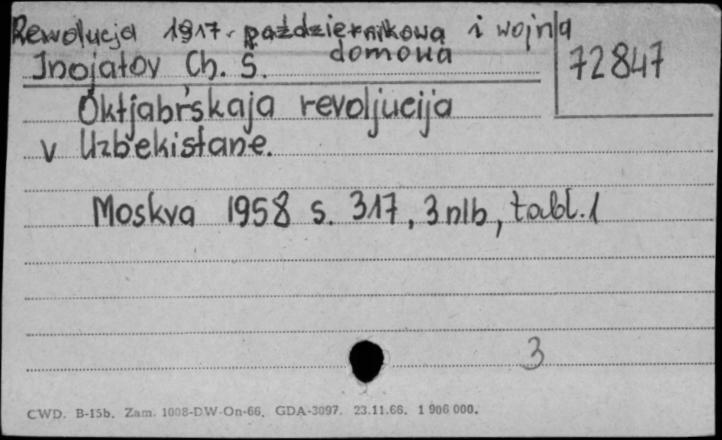 Rewolucja 1917. październikowa i wojna
domowa
Inojatov Ch. Š.
72847
Oktjabŕskaja revoljucija
v Uzbekistane.
Moskva 1958 s. 317, 3 nlb, tabl. 1
3
CWD. B-15b. Zam. 1008-DW-On-66. GDA-3097. 23.11.66. 1 906 000.